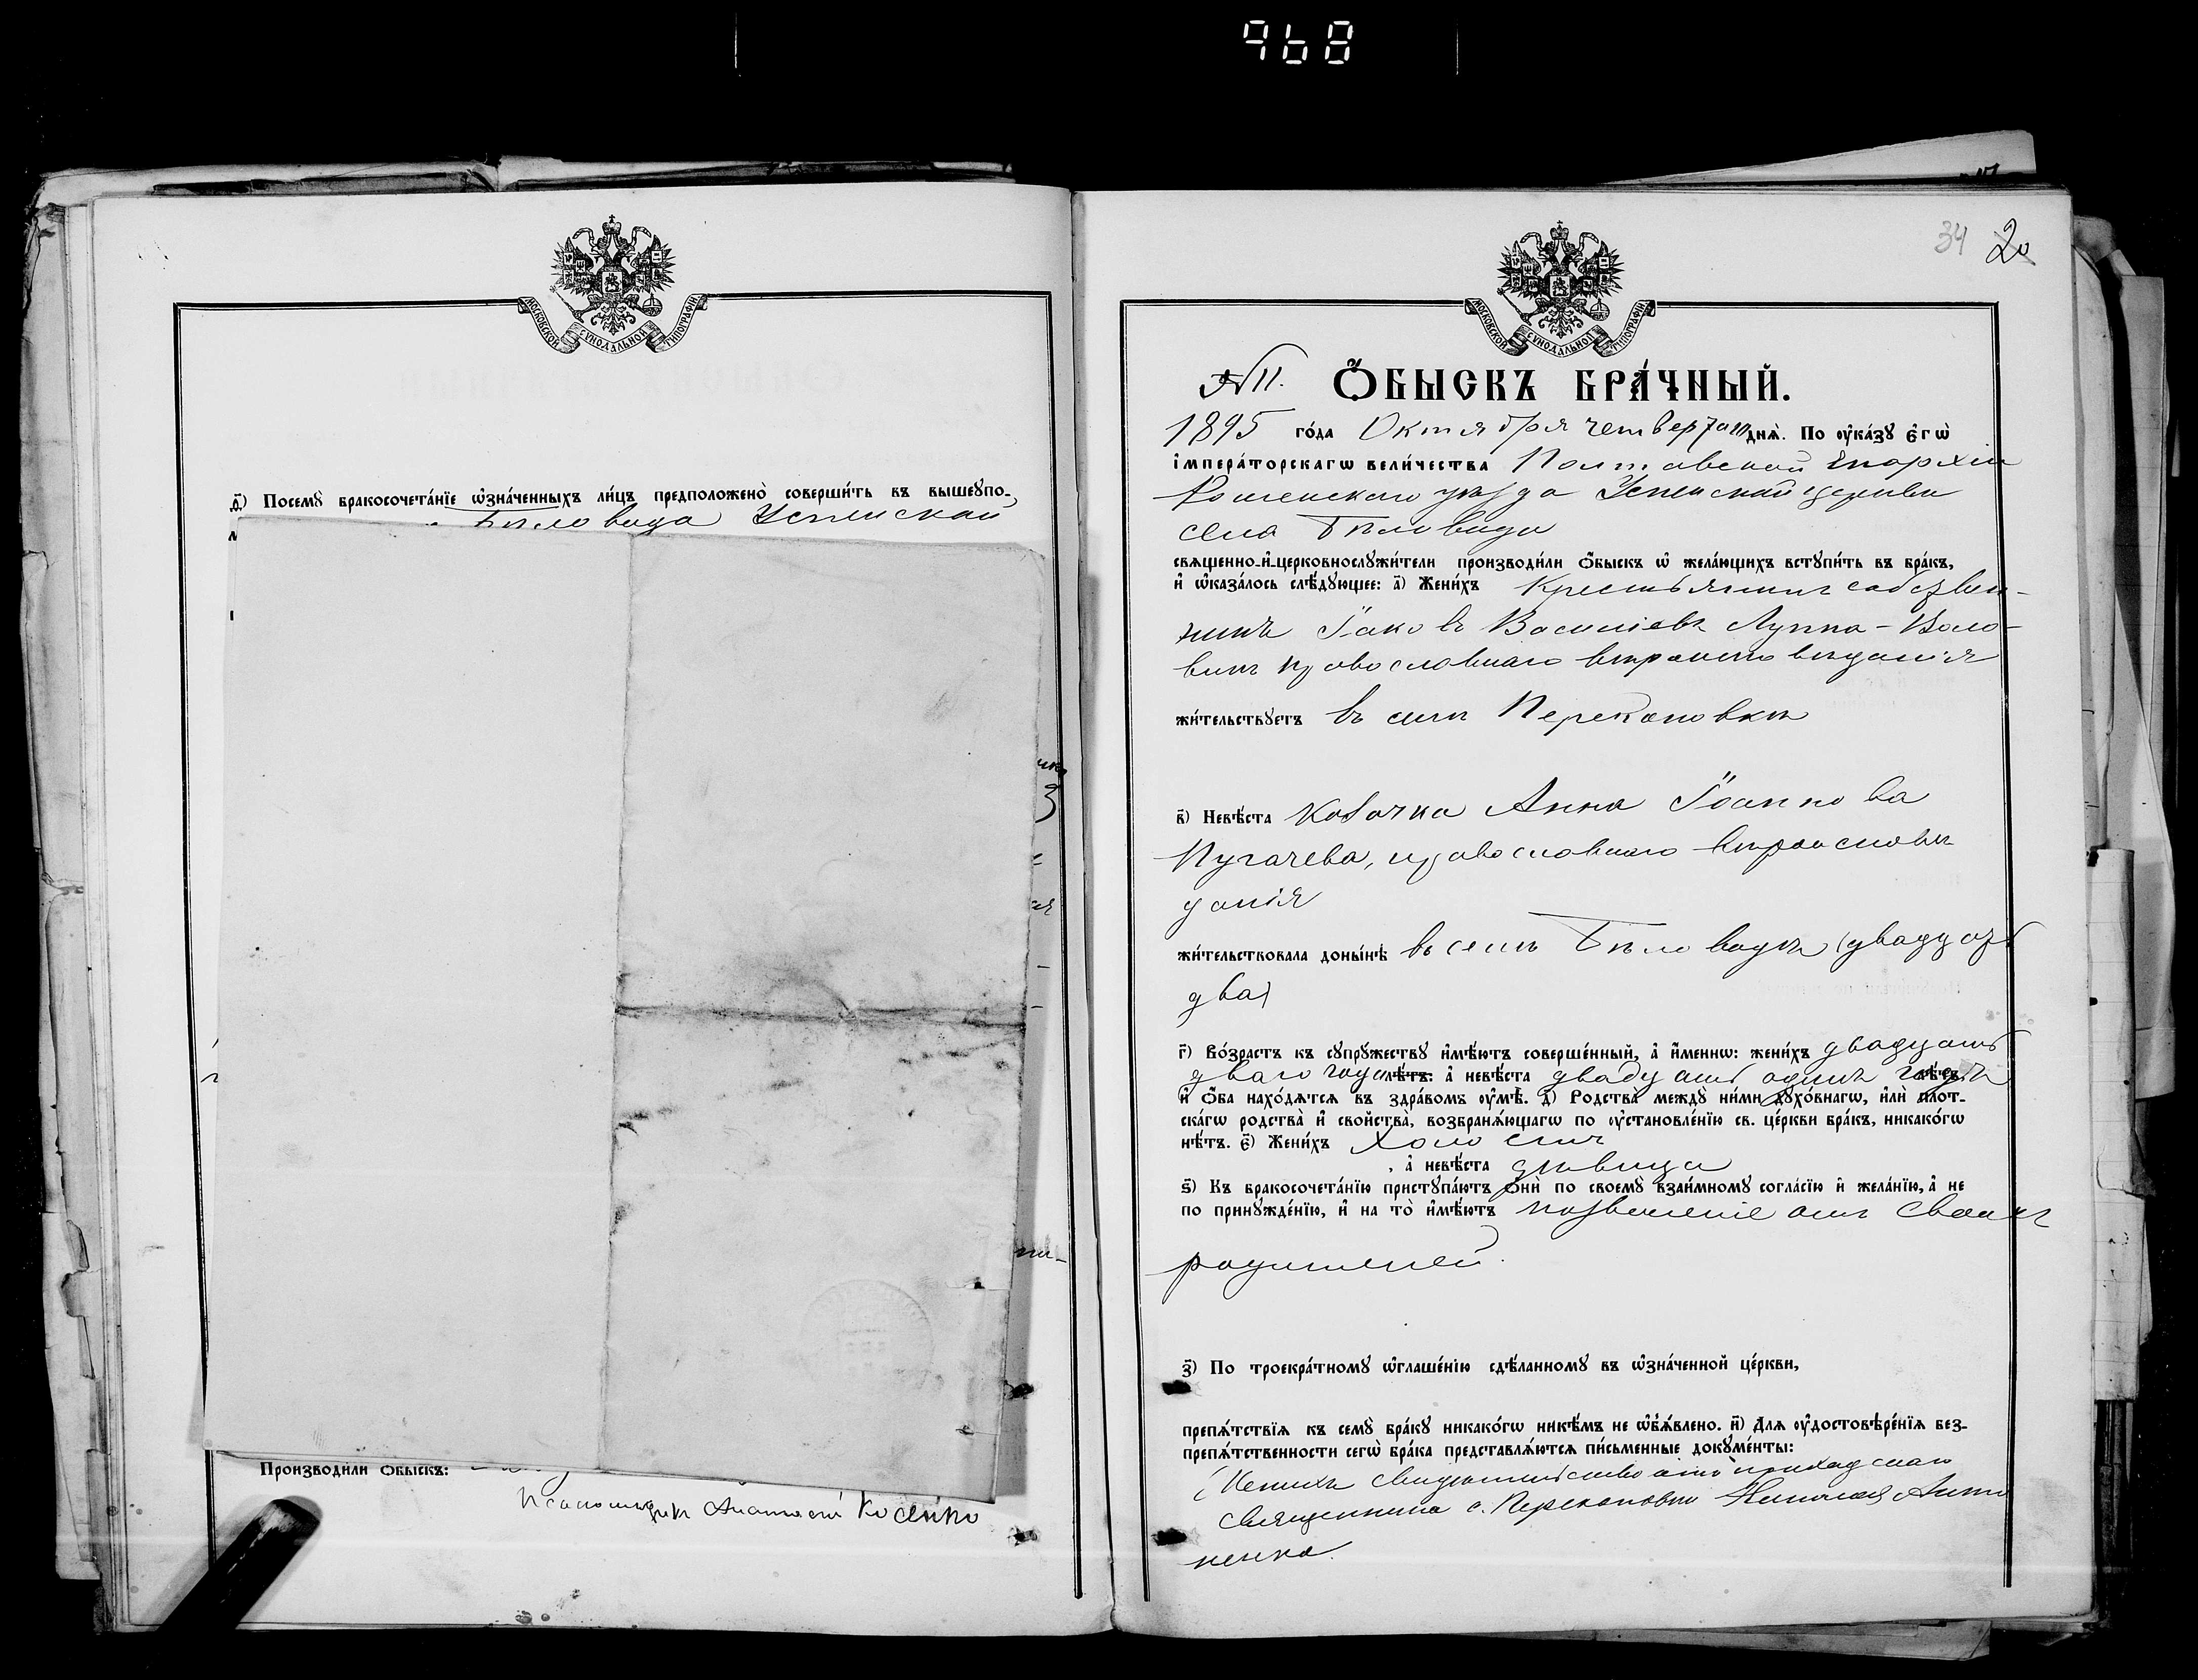 968
МОСКОВСКОЙ СѴНОДАЛЬНОЙ ТИПОГРАФІИ
д҃) Посемꙋ̀ бракосочета́нїе ѡ҆зна́ченныхъ ли́цъ предположено̀ соверши́ть въ вышеꙋпо-
Бѣловода Успенской
Произво́дили ѻ҆́быскъ:
Псаломщикъ Анатолій Косенко
34 20
МОСКОВСКОЙ СѴНОДАЛЬНОЙ ТИПОГРАФІИ
№ 11. Ѻ҆́БЫСКЪ БРА́ЧНЫЙ.
1895 го́да Октября четвертаго дня̀. По ᲂу҆ка́зꙋ є҆гѡ̀
і҆мпера́торскагѡ вели́чества Полтавской Епархіи
Роменскаго уѣзда Успенской церкви
села Бѣловода
свѧщенно-и҆-церковнослꙋжи́тели производи́ли ѻ҆́быскъ ѡ҆ жела́ющихъ встꙋпи́ть въ бра́къ,
и҆ ѡ҆каза́лось слѣ́дꙋющее: а҃) Жени́хъ Крестьянинъ собствен-
никъ Іаковъ Василіевъ Луппа-Воло-
винъ православнаго вѣроисповѣданія
жи́тельствꙋетъ въ селѣ Перекоповкѣ
в҃) Невѣ́ста Козачка Анна Іоаннова
Пугачева, православнаго вѣроисповѣ
данія
жи́тельствовала доны́нѣ въ селѣ Бѣловодѣ (двадцать
два)
г҃) Во́зрастъ къ сꙋпрꙋ́жествꙋ и҆мѣ́ютъ соверше́нный, а҆ и҆́меннѡ: жени́хъ двадцать
два года лѣ́тъ: а҆ невѣ́ста двадцать одинъ годъ лѣ́тъ
и҆ ѻ҆́ба нахо́дѧтсѧ въ здра́вомъ ᲂу҆мѣ̀. д҃) Родства̀ междꙋ̀ ни́ми дꙋхо́внагѡ, и҆лѝ пло́т-
ска́гѡ родства̀ и҆ сво́йства̀, возбранѧ́ющагѡ по ᲂу҆становле́нїю св. це́ркви бра́къ, никако́гѡ
нѣ́тъ. є҃) Жени́хъ холостъ
, а҆ невѣ́ста дѣвица
ѕ҃) Къ бракосочета́нїю пристꙋпа́ютъ ѻ҆нѝ по своемꙋ̀ взаи́мномꙋ согла́сїю и҆ жела́нїю, а҆ не
по принꙋжде́нїю, и҆ на то̀ и҆мѣ́ютъ позволеніе отъ своихъ
родителей.
з҃) По троекра́тномꙋ ѡ҆глаше́нїю сдѣ́ланномꙋ въ ѡ҆зна́ченной це́ркви,
препѧ́тствїѧ къ семꙋ̀ бра́кꙋ никако́гѡ никѣ́мъ не ѡ҆б̾ѧ́влено. и҃) Для ᲂу҆достовѣре́нїѧ без-
препѧ́тственности сегѡ̀ бра́ка представлѧ́ютсѧ пи́сьменные докꙋме́нты:
Жениха свидѣтельство отъ приходскаго
священника с. Перекоповки Николая Анто
ненка.